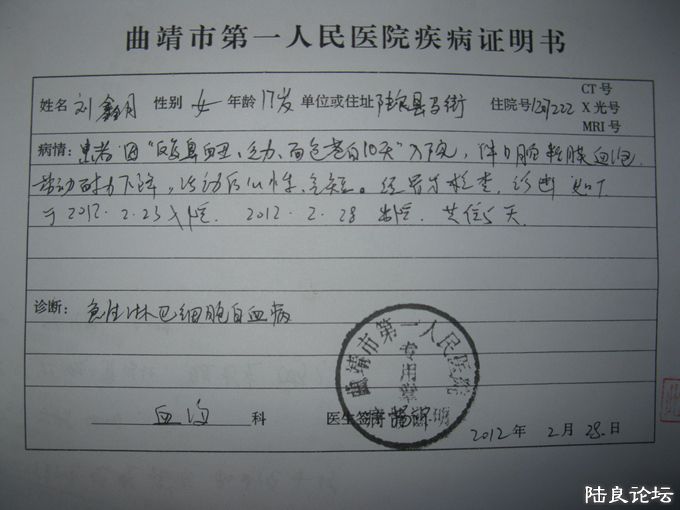 曲靖市第一人民医院疾病证明书
姓名 刘鑫月 性别 女 年龄 17岁 单位或住址 陆良县马街 住院号 CT号 X光号 MRI号
病情：患者因“反复鼻血、乏力、面色苍白10天”入院，伴口腔粘膜血泡
劳动耐力下降，活动后心悸、气短。经骨穿检查，诊断如下
于2012.2.23入院．2012．2．28出院．共住5天
诊断：急性淋巴细胞白血病
曲靖市第一人民医院
专用章
血液 科 医生签字
2012年2月28日
陆良论坛